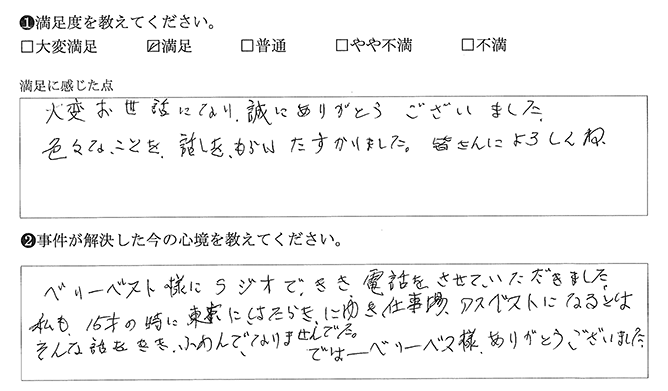 ❶満足度を教えてください。
□大変満足 ☑満足 □普通 □やや不満 □不満
満足に感じた点
大変お世話になり、誠にありがとうございました、
色々な、ことを、話しを、もらい たすかりました。皆さんによろしくね、
❷事件が解決した今の心境を教えてください。
ベリーベスト様にラジオで、きき 電話をさせていただきました、
私も、15才の時に東京にはたらきに、ゆき、仕事場、アスベストになるとは
そんな話をきき、ふあんで、なりませんでした。
では―ベリーベス様、ありがとうございました